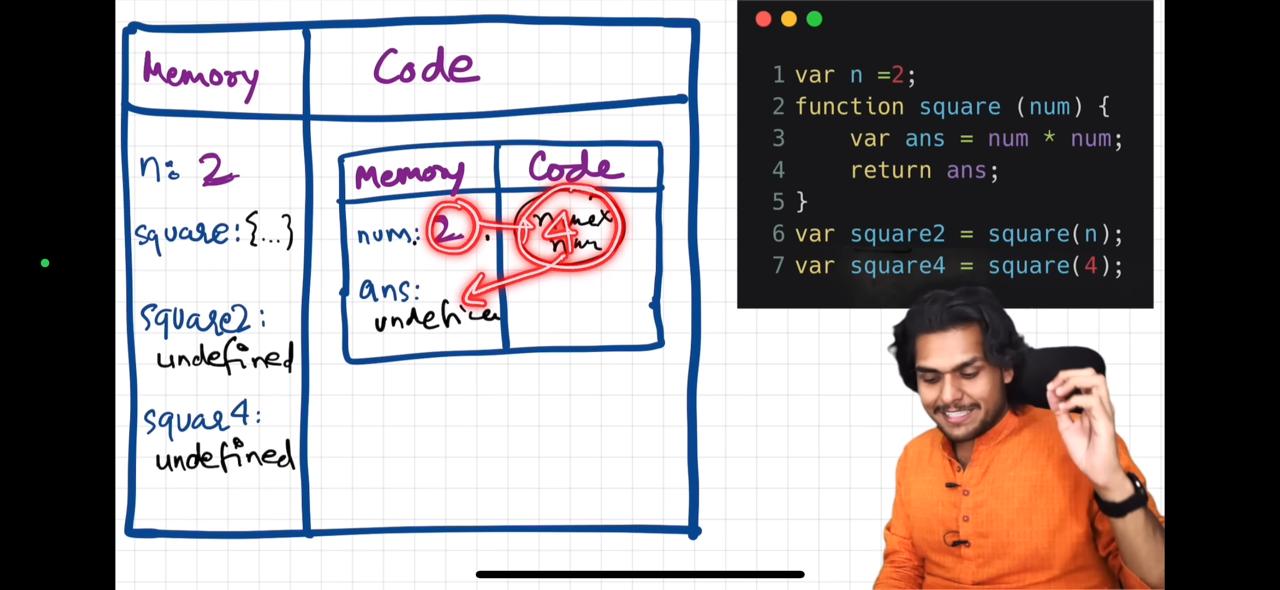 Memory
Code
n: 2
square: {...}
square2:
undefined
squar4:
undefined
Memory
Code
num: 2
4
ans:
1 var n =2;
2 function square (num) {
3 var ans = num * num;
4 return ans;
5 }
6 var square2 = square(n);
7 var square4 = square(4);